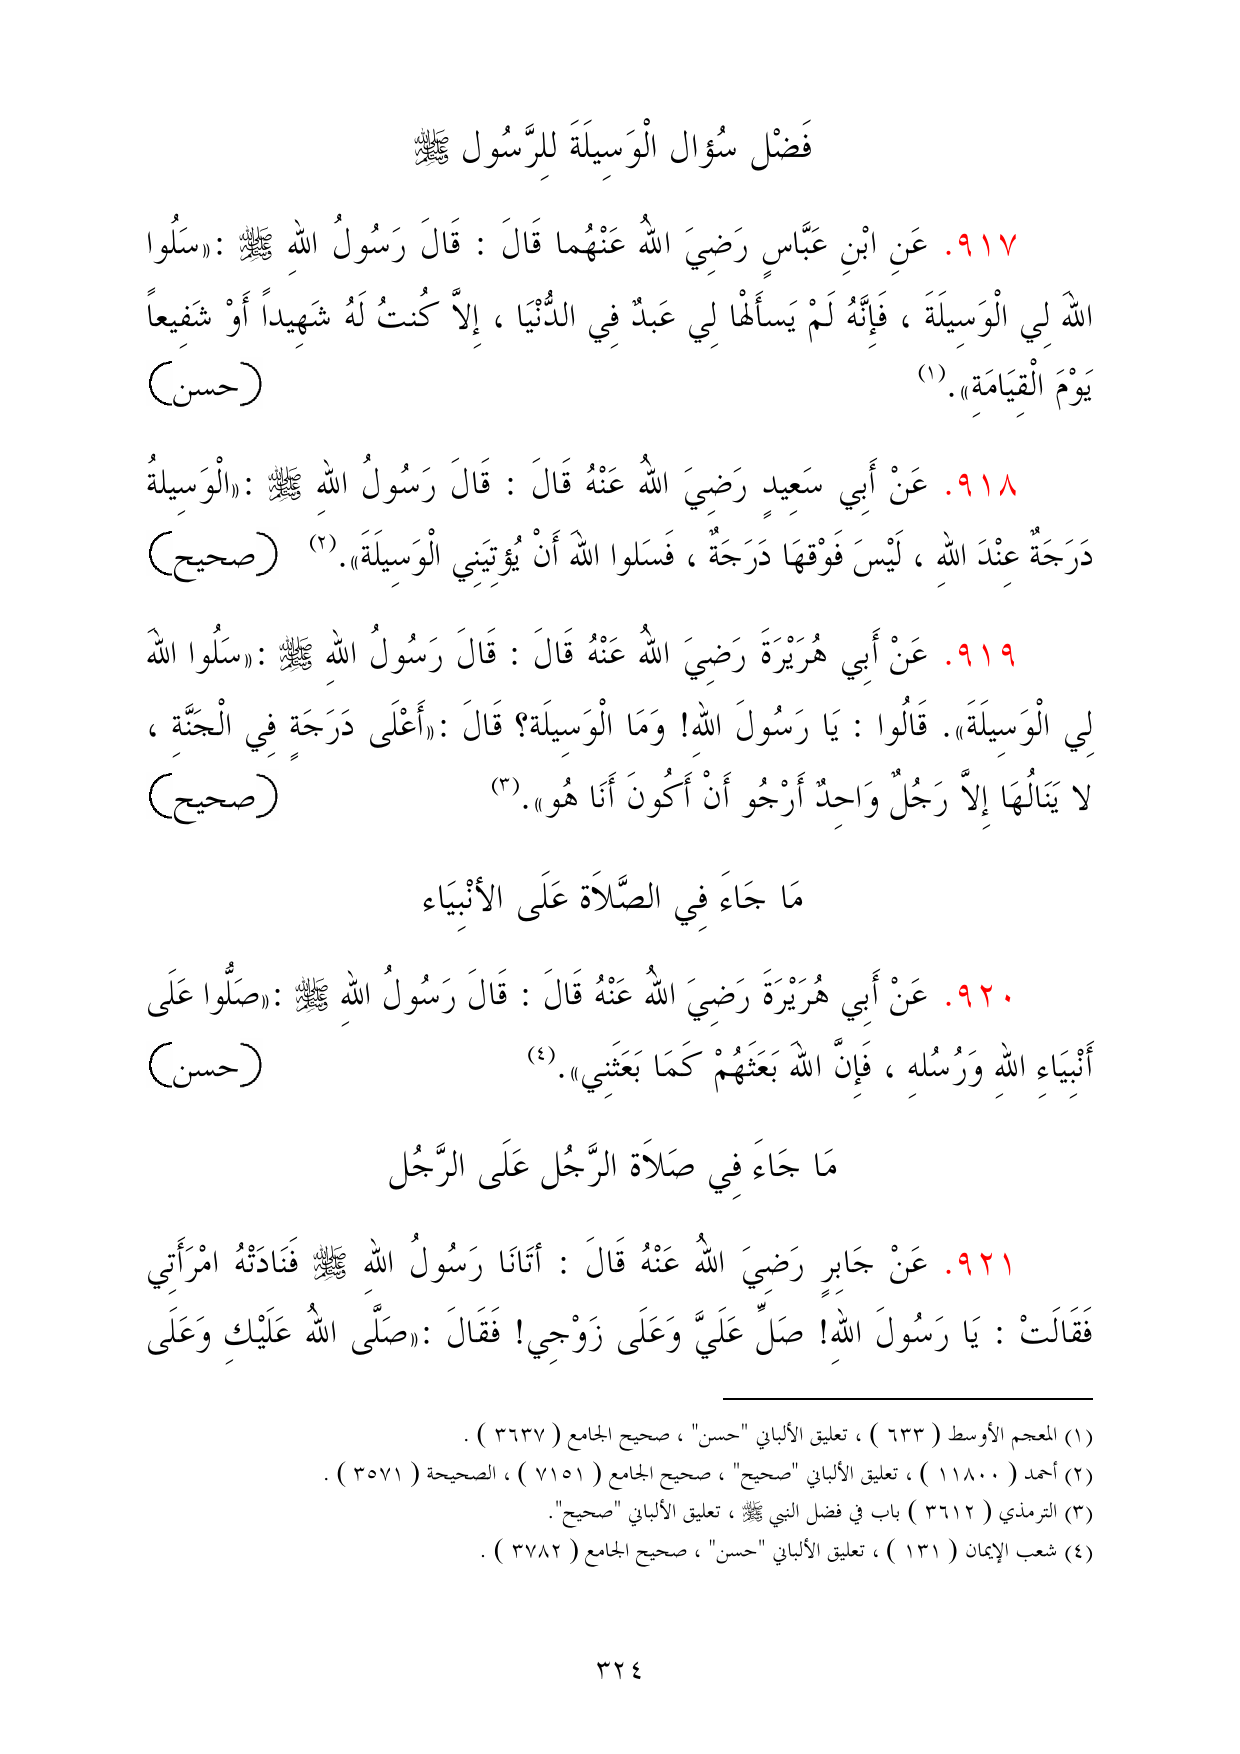 فَضْل سُؤال الْوَسِيلَةَ لِلرَّسُول ﷺ
٩١٧. عَنِ ابْنِ عَبَّاسٍ رَضِيَ اللهُ عَنْهُما قَالَ : قَالَ رَسُولُ اللهِ ﷺ :«سَلُوا
اللهَ لِي الْوَسِيَلَةَ ، فَإِنَّهُ لَمْ يَسأَلْها لِي عَبدٌ فِي الدُّنْيَا ، إِلاَّ كُنتُ لَهُ شَهِيداً أَوْ شَفِيعاً
يَوْمَ الْقِيَامَةِ».(١) (حسن)
٩١٨. عَنْ أَبِي سَعِيدٍ رَضِيَ اللهُ عَنْهُ قَالَ : قَالَ رَسُولُ اللهِ ﷺ :«الْوَسِيلةُ
دَرَجَةٌ عِنْدَ اللهِ ، لَيْسَ فَوْقهَا دَرَجَةٌ ، فَسَلوا اللهَ أَنْ يُؤتِيَنِي الْوَسِيلَةَ».(٢) (صحيح)
٩١٩. عَنْ أَبِي هُرَيْرَةَ رَضِيَ اللهُ عَنْهُ قَالَ : قَالَ رَسُولُ اللهِ ﷺ :«سَلُوا اللهَ
لِي الْوَسِيَلَةَ». قَالُوا : يَا رَسُولَ اللهِ! وَمَا الْوَسِيلَة؟ قَالَ :«أَعْلَى دَرَجَةٍ فِي الْجَنَّةِ ،
لا يَنَالُهَا إِلاَّ رَجُلٌ وَاحِدٌ أَرْجُو أَنْ أَكُونَ أَنَا هُو».(٣) (صحيح)
مَا جَاءَ فِي الصَّلاَة عَلَى الأنْبِيَاء
٩٢٠. عَنْ أَبِي هُرَيْرَةَ رَضِيَ اللهُ عَنْهُ قَالَ : قَالَ رَسُولُ اللهِ ﷺ :«صَلُّوا عَلَى
أَنْبِيَاءِ اللهِ وَرُسُلهِ ، فَإِنَّ اللهَ بَعَثَهُمْ كَمَا بَعَثَنِي».(٤) (حسن)
مَا جَاءَ فِي صَلاَة الرَّجُل عَلَى الرَّجُل
٩٢١. عَنْ جَابِرٍ رَضِيَ اللهُ عَنْهُ قَالَ : أتَانَا رَسُولُ اللهِ ﷺ فَنَادَتْهُ امْرَأَتِي
فَقَالَتْ : يَا رَسُولَ اللهِ! صَلِّ عَلَيَّ وَعَلَى زَوْجِي! فَقَالَ :«صَلَّى اللهُ عَلَيْكِ وَعَلَى
(١) المعجم الأوسط ( ٦٣٣ ) ، تعليق الألباني "حسن" ، صحيح الجامع ( ٣٦٣٧ ) .
(٢) أحمد ( ١١٨٠٠ ) ، تعليق الألباني "صحيح" ، صحيح الجامع ( ٧١٥١ ) ، الصحيحة ( ٣٥٧١ ) .
(٣) الترمذي ( ٣٦١٢ ) باب في فضل النبي ﷺ ، تعليق الألباني "صحيح".
(٤) شعب الإيمان ( ١٣١ ) ، تعليق الألباني "حسن" ، صحيح الجامع ( ٣٧٨٢ ) .
٣٢٤